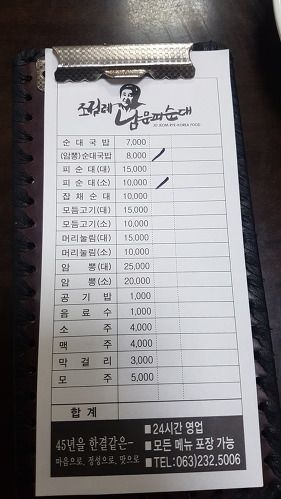 조점례
남문피순대
JO JEOM RYE-KOREA FOOD
순대국밥 7,000
(암뽕)순대국밥 8,000
피순대(대) 15,000
피순대(소) 10,000
잡채순대 10,000
모듬고기(대) 15,000
모듬고기(소) 10,000
머리눌림(대) 15,000
머리눌림(소) 10,000
암뽕(대) 25,000
암뽕(소) 20,000
공기밥 1,000
음료수 1,000
소주 4,000
맥주 4,000
막걸리 3,000
모주 5,000
합계
45년을 한결같은-
마음으로, 정성으로, 맛으로
■ 24시간 영업
■ 모든 메뉴 포장 가능
■ TEL:063)232.5006